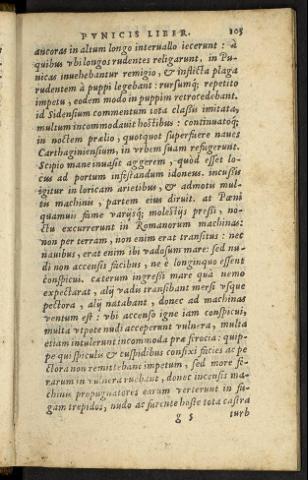 PVNICIS LIBER. 105
ancoras in altum longo interuallo iecerunt: à
quibus vbi longos rudentes religarunt, in Pu-
nicas inuehebantur remigio, & inflicta plaga
rudentem à puppi legebant: rursumq́; repetito
impetu, eodem modo in puppim retrocedebant.
id Sidensium commentum tota classis imitata,
multum incommodauit hostibus: continuatoq́;
in noctem prælio, quotquot superfuere naues
Carthaginiensium, in vrbem suam refugerunt.
Scipio mane inuasit aggerem, quòd esset lo-
cus ad portum infestandum idoneus. incußis
igitur in loricam arietibus, & admotis mul-
tu machinis, partem eius diruit. at Pœni
quamuis fame varijsq́; molestijs preßi, no-
ctu excurrerunt in Romanorum machinas:
non per terram, non enim erat transitus: nec
nauibus, erat enim ibi vadosum mare: sed nu-
di non accensis facibus, ne è longinquo essent
conspicui. cæterum ingreßi mare quà nemo
expectarat, alij vadis transibant mersi vsque
pectora, alij natabant, donec ad machinas
ventum est: vbi accenso igne iam conspicui,
multa vtpote nudi acceperunt vulnera, multa
etiam intulerunt incommoda præ ferocia: quip-
pe qui spiculis & cuspidibus confixi facies ac pe
ctora non remittebant impetum, sed more fe-
rarum in vulnera ruebant, donec incensis ma-
chinis propugnatores earum verterunt in fu-
gam trepidos, nudo ac furente hoste tota castra
g 5 turb